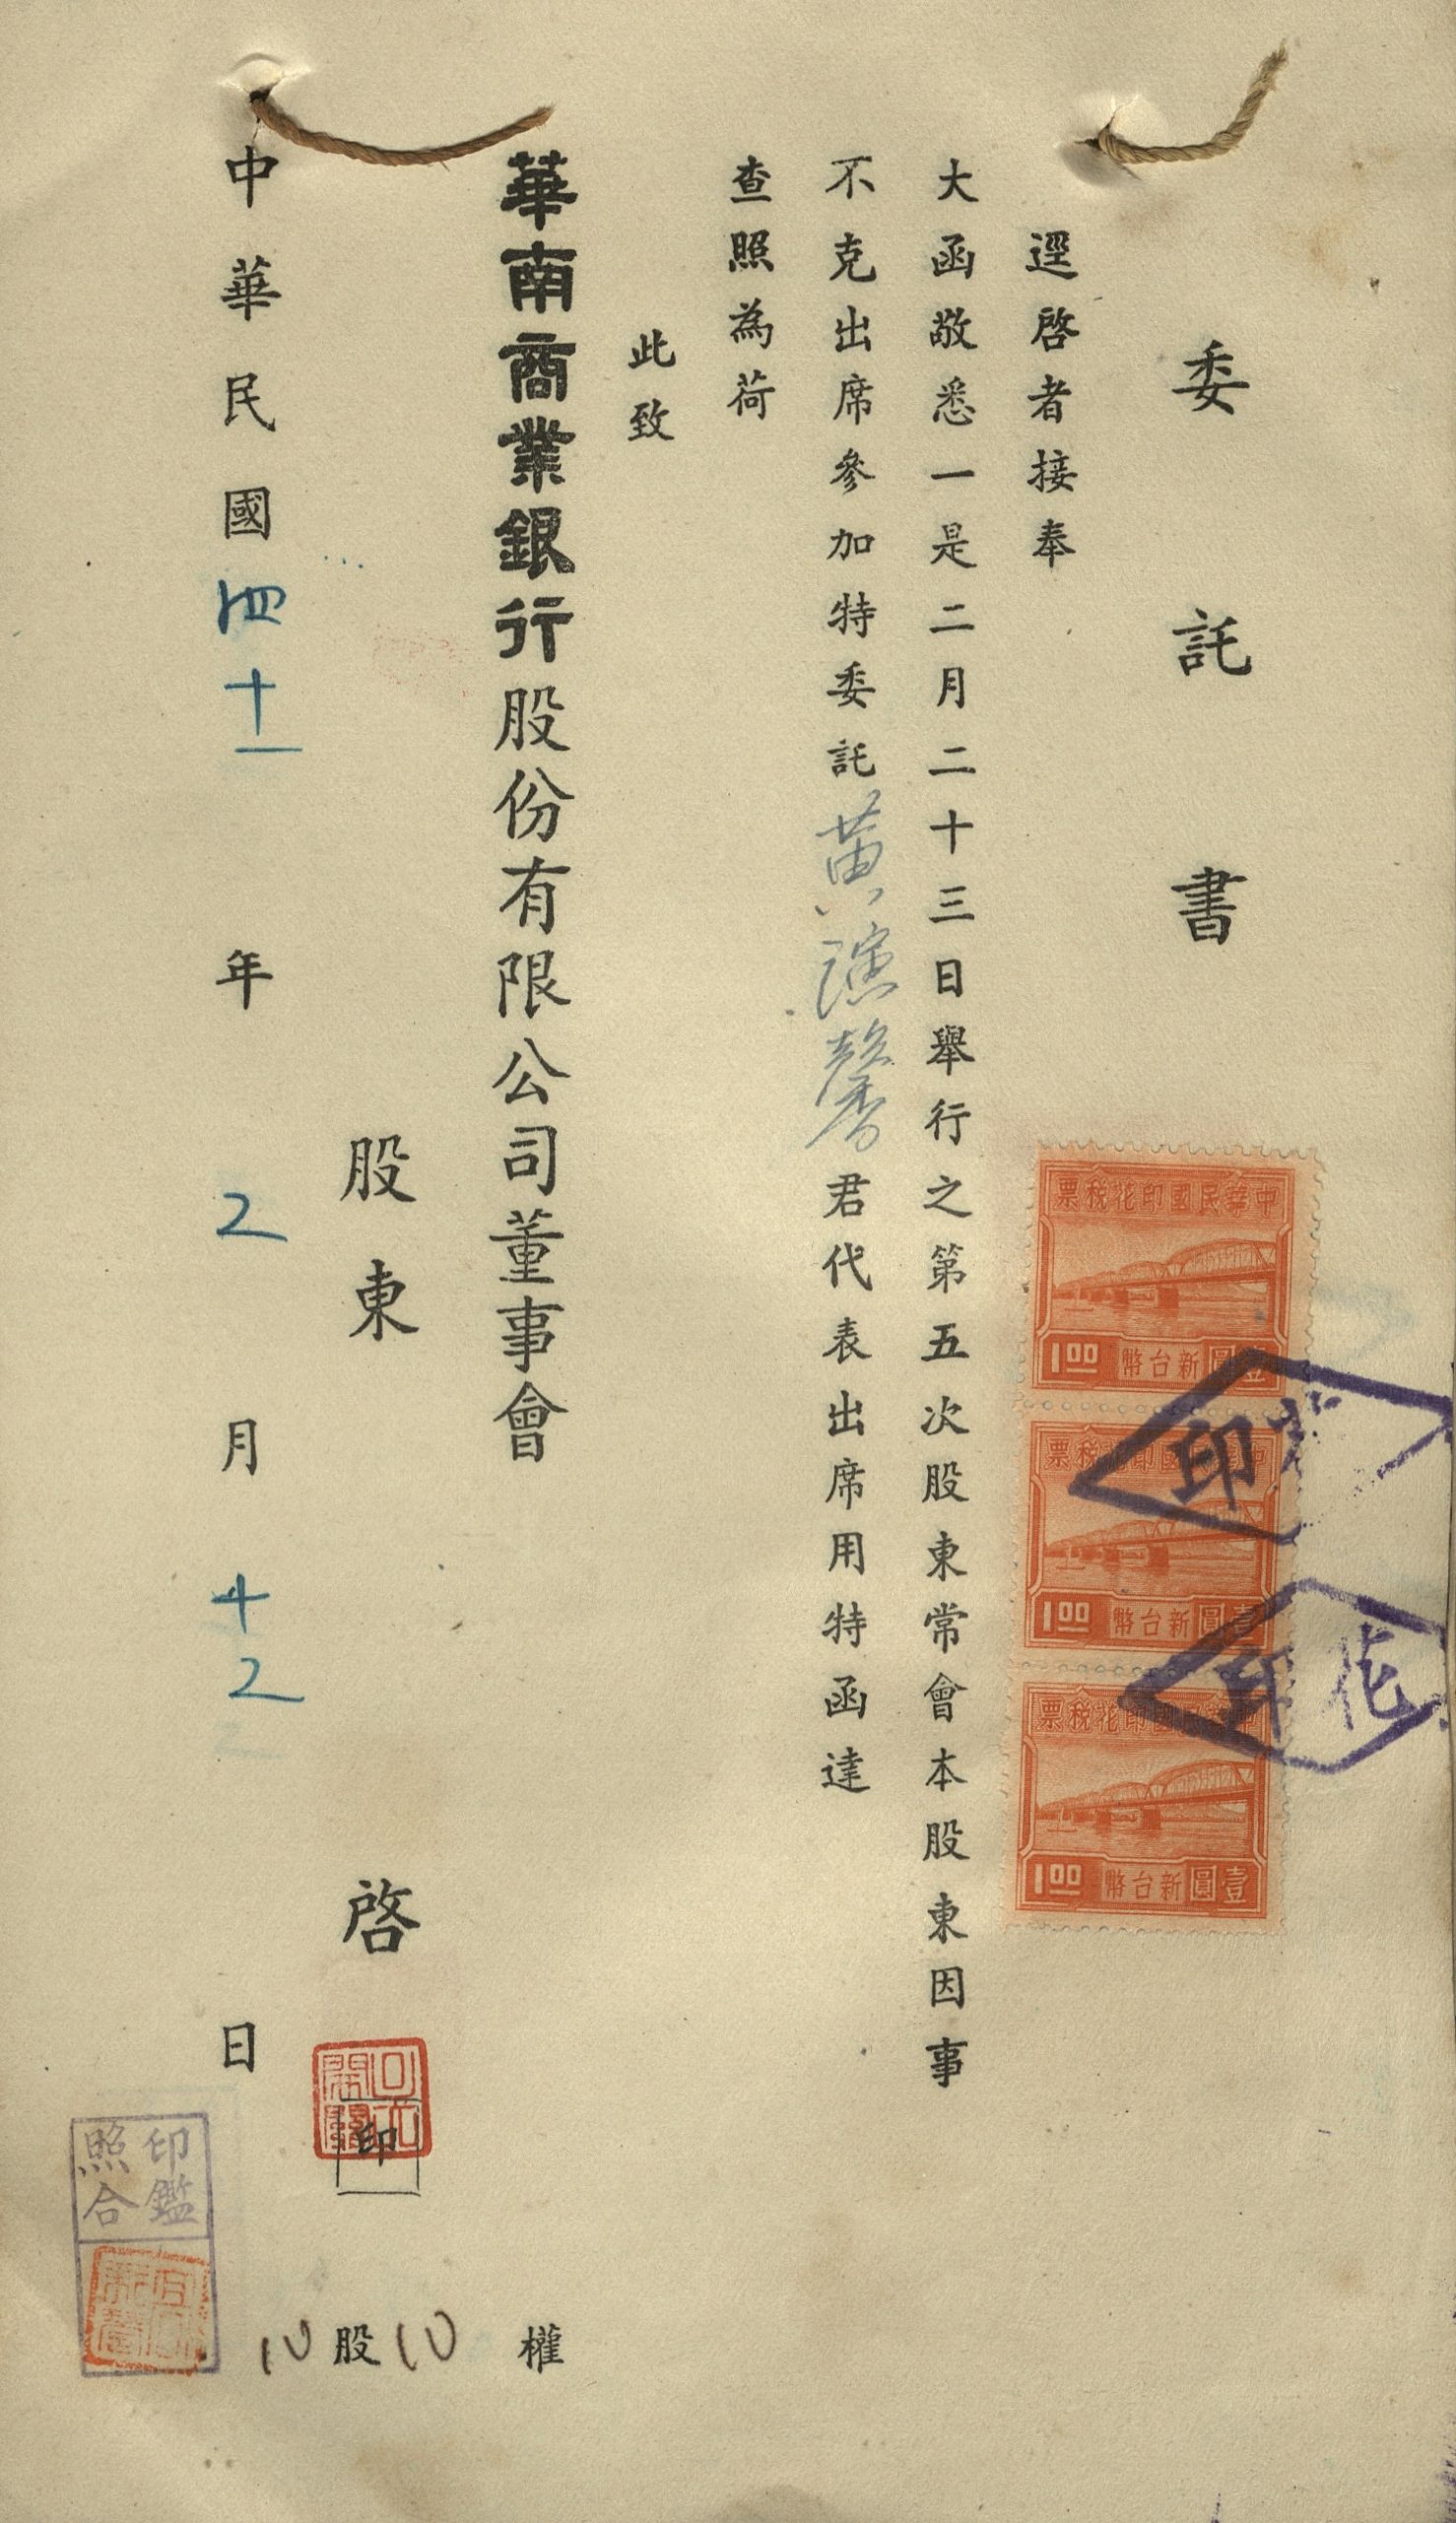 委託書
逕啓者接奉
大函敬悉一是二月二十三日舉行之第五次股東常會本股東因事
不克出席參加特委託黃演馨君代表出席用特函達
查照為荷
此致
華南商業銀行股份有限公司董事會
股東 啓 印
中華民國四十一年2月十2日
10股10權
印鑑
照合
中華民國印花稅票
1.00 新台幣壹圓
中華民國印花稅票
1.00 新台幣壹圓
中華民國印花稅票
1.00 新台幣壹圓
印花
印花